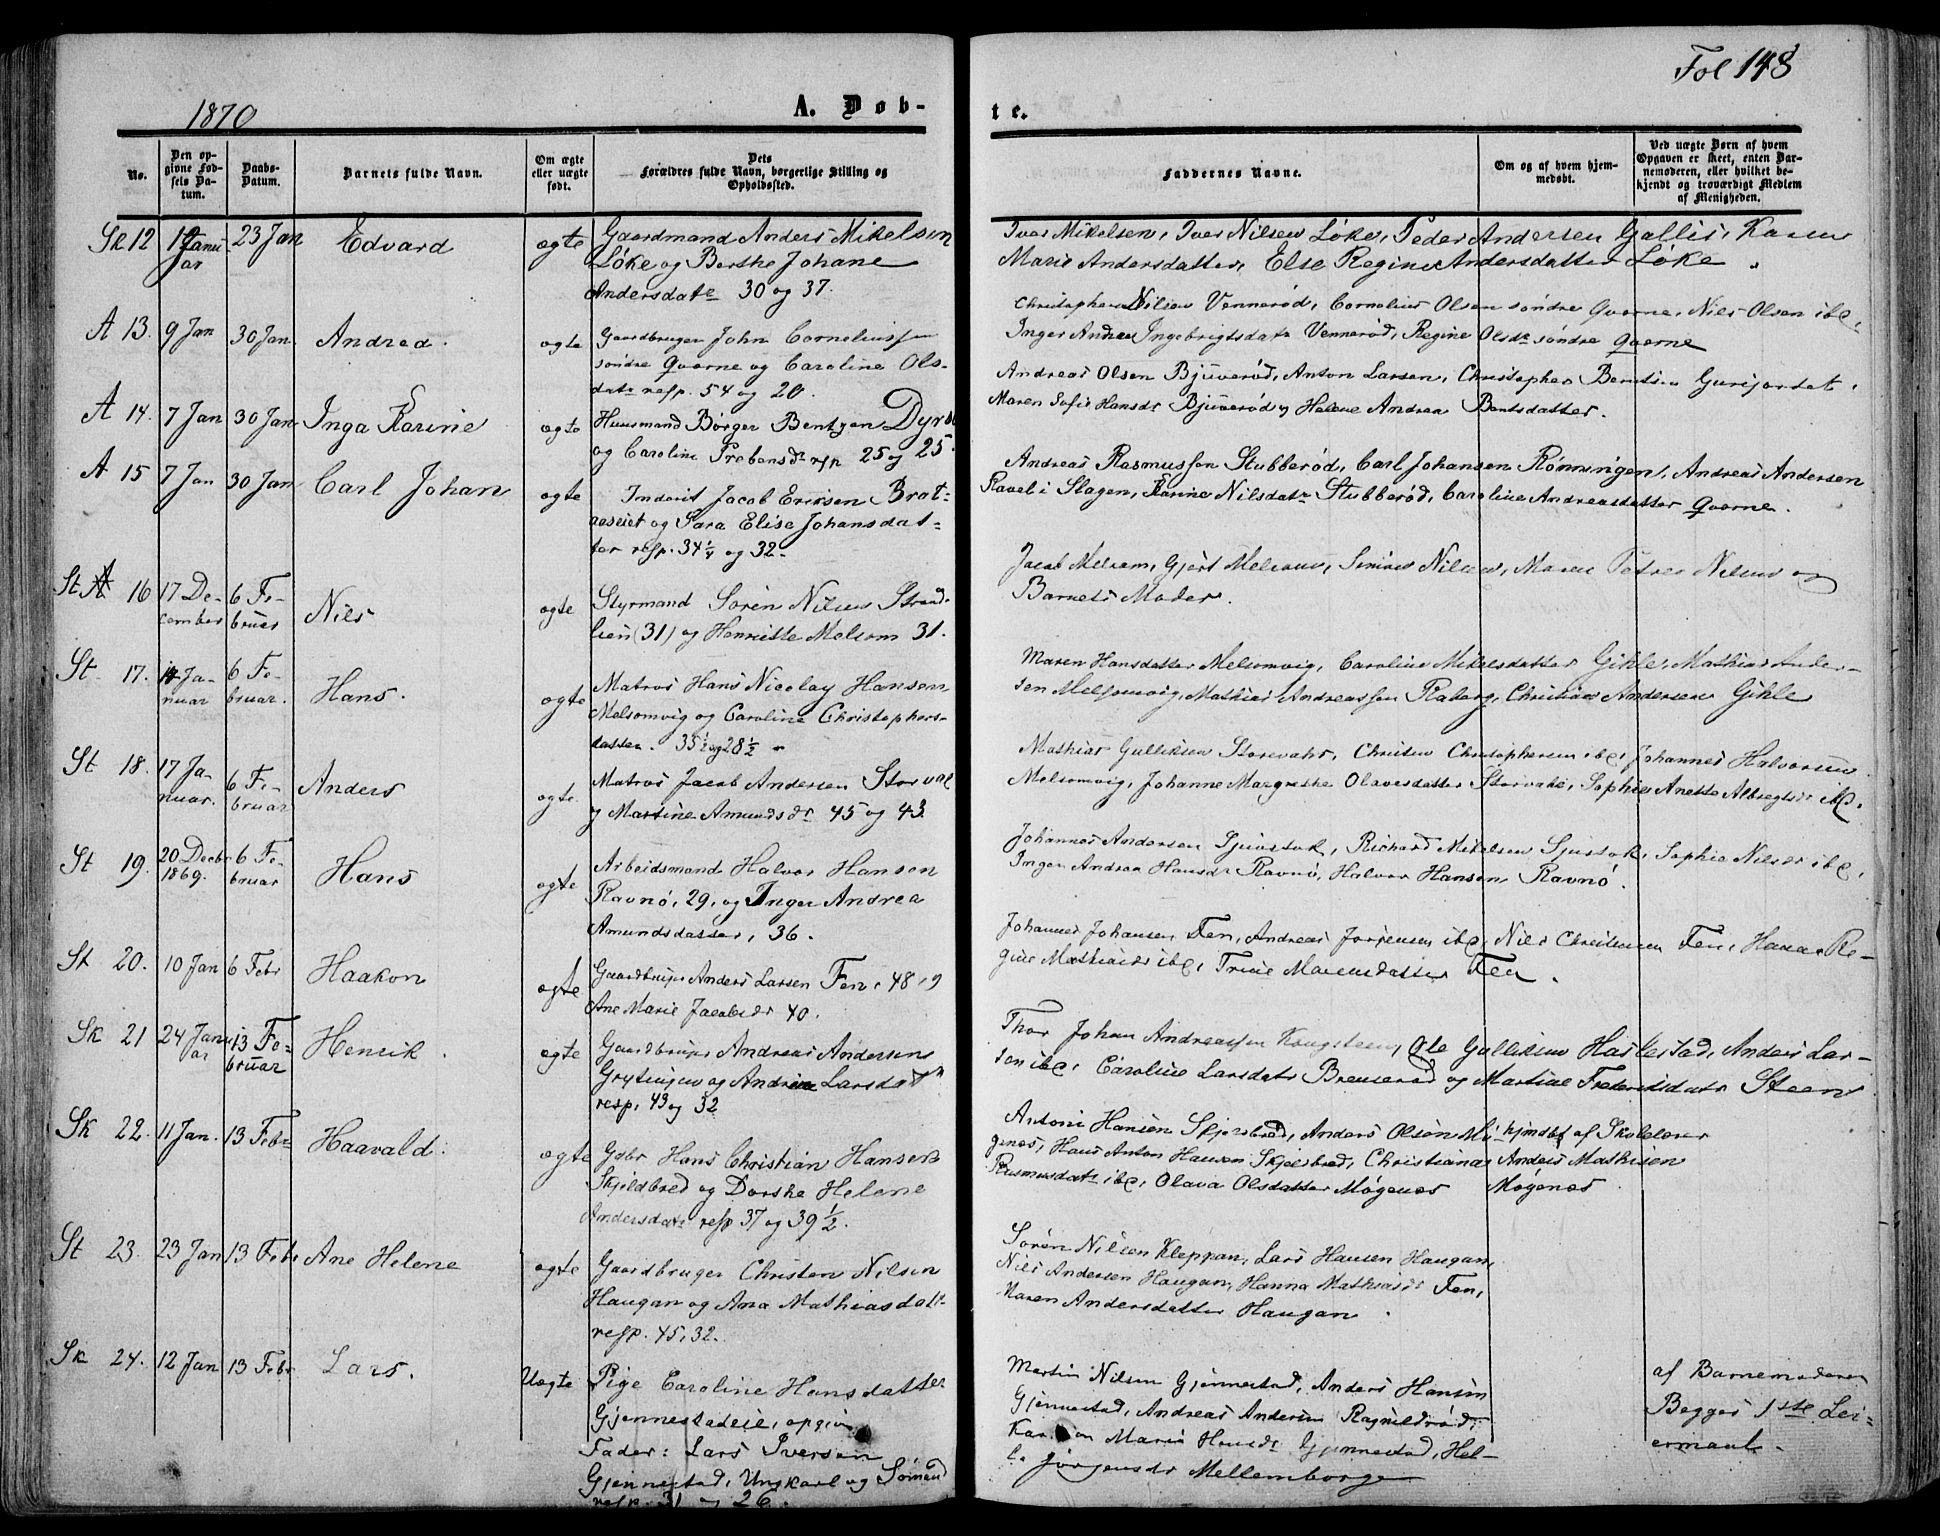 Fol 148
1870
A. Døb-
te.
No.
Den op-
givne Fød-
sels Da-
tum.
Daabs-
Datum.
Barnets fulde Navn.
Om ægte
eller uægte
født.
Dets
Forældres fulde Navn, borgerlige Stilling og
Opholdssted.
Faddernes Navne.
Om og af hvem hjem-
medøbt.
Ved uægte Børn af hvem
Opgaven er skeet, enten Bar-
nemoderen, eller hvilket be-
kjendt og troværdigt Medlem
af Menigheden.
Sk 12 Janu-
ar 23 Jan Edvard ægte
Gaardmand Anders Mikelsen
Løke og Berthe Johane
Andersdatr 30 og 37.
Iver Mikelsen, Iver Nilsen Løke, Peder Andersen Gallis, Karen
Marie Andersdatter, Else Regine Andersdatter Løke.
A 13. 9 Jan 30 Jan. Andrea. ægte
Gaardbruger John Corneliussen
søndre Qverne og Caroline Ols-
datr resp. 54 og 20.
Christopher Nilsen Vennerød, Cornelius Olsen søndre Qverne, Nils Olsen ibd,
Inger Andrea Ingebrigtsdatr Vennerød, Regine Olsdr søndre Qverne
A 14. 7 Jan 30 Jan Inga Karine ægte
Huusmand Børger Bentzen Dyrsø
og Caroline Prebensdr resp 25 og 25.
Andreas Olsen Bjuverød, Anton Larsen, Christopher Berntsen Gurijordet,
Maren Sofie Hansdr Bjuverød og Helene Andrea Berntsdatter.
A 15 7 Jan 30 Jan Carl Johan ægte
Inderst Jacob Eriksen Brat-
aaseiet og Sara Elise Johansdat-
ter resp. 34 1/4 og 32.
Andreas Rasmussen Stubberød, Carl Johansen Rønningen, Andreas Andersen
Ravel i Slagen, Karine Nilsdatr Stubberød, Caroline Andreasdatter Qverne.
St 16 17 De-
cember 6 Fe-
bruar Nils ægte
Styrmand Søren Nilsen Strand-
lien (31) og Henriette Melsom 31.
Jacob Melsom, Gjert Melsom, Simon Nilsen, Maren Petrea Nilsen og
Barnets Moder.
St 17. Ja-
nuar 6 Fe-
bruar. Hans. ægte
Matros Hans Nicolay Hansen
Melsomvig og Caroline Christophers-
datter. 35 1/2 og 28 1/2
Maren Hansdatter Melsomvig, Caroline Mikelsdatter Gihle, Mathias Ander-
sen Melsomvig, Mathias Andreassen Raberg, Christian Andersen Gihle
St 18. 17 Ja-
nuar. 6 Fe-
bruar Anders ægte.
Matros Jacob Andersen Storval
og Martine Amundsdr 45 og 43
Mathias Gulliksen Storevahr, Christen Christophersen ibd, Johannes Halvorsen
Melsomvig, Johanne Margrethe Olavesdatter Storvahr, Sophie Anette Albregtsdr ibd.
St 19. 20 Decbr
1869. 6 Fe-
bruar Hans ægte
Arbeidsmand Halvor Hansen
Ravnø, 29, og Inger Andrea
Amundsdatter, 36.
Johannes Andersen Sjuestok, Richard Mikelsen Sjuestok, Sophie Nilsdr ibd,
Inger Andrea Hansdr Ravnø, Halvor Hansen Ravnø.
St 20. 10 Jan 6 Febr Haakon ægte
Gaardbruger Anders Larsen Fen, 48, og
Ane Marie Jacobsdr 40.
Johannes Johansen Fen, Andreas Jørgensen ibd, Nils Christensen Fen, Hana Re-
gine Mathiasdr ibd, Trine Marensdatter Fen.
Sk 21 24 Janu-
ar 13 Fe-
bruar Henrik. ægte
Gaardbruger Andreas Andersen
Grytingen og Andrine Larsdatr
resp. 43 og 32
Thor Johan Andreassen Kongsteen, Ole Gulliksen Haslestad, Anders Lar-
sen ibd, Caroline Larsdatr Brenserød og Martine Frederiksdatr Steen
Sk 22. 11 Jan. 13 Febr Haavald. ægte
Gdbr Hans Christian Hansen
Skjeldbred og Dorthe Helene
Andersdatr resp 37 og 39 1/2.
Antoni Hansen Skjelsbred, Anders Olsen Mø-
genæs, Hans Anton Hansen Skjelbred, Christiana
Rasmusdatr ibd, Olava Olsdatter Møgenæs
hjmdbt af Skolelærer
Anders Mathisen
Møgenæs
St 23. 23 Jan 13 Febr Ane Helene ægte
Gaardbruger Christen Nilsen
Haugan og Ana Mathiasdatr
resp. 45, 32.
Søren Nilsen Kleppan, Lars Hansen Haugan,
Nils Andersen Haugan, Hanna Mathiasdr Fen,
Maren Andersdatter Haugan.
Sk 24. 12 Jan 13 Febr Lars. Uægte
Pige Caroline Hansdatter
Gjennestadeie, opgiven
Fader: Lars Iversen
Gjennestad, Ungkarl og Sømand
resp. 31 og 26.
Martin Nilsen Gjennestad, Anders Hansen
Gjennestad, Andreas Andersen Ragnildrød,
Karen Marie Hansdr Gjennestad, Hel-
le Jørgensdr Mellemborge
af Barnemoderen
Begges 1ste Lei-
ermaal.